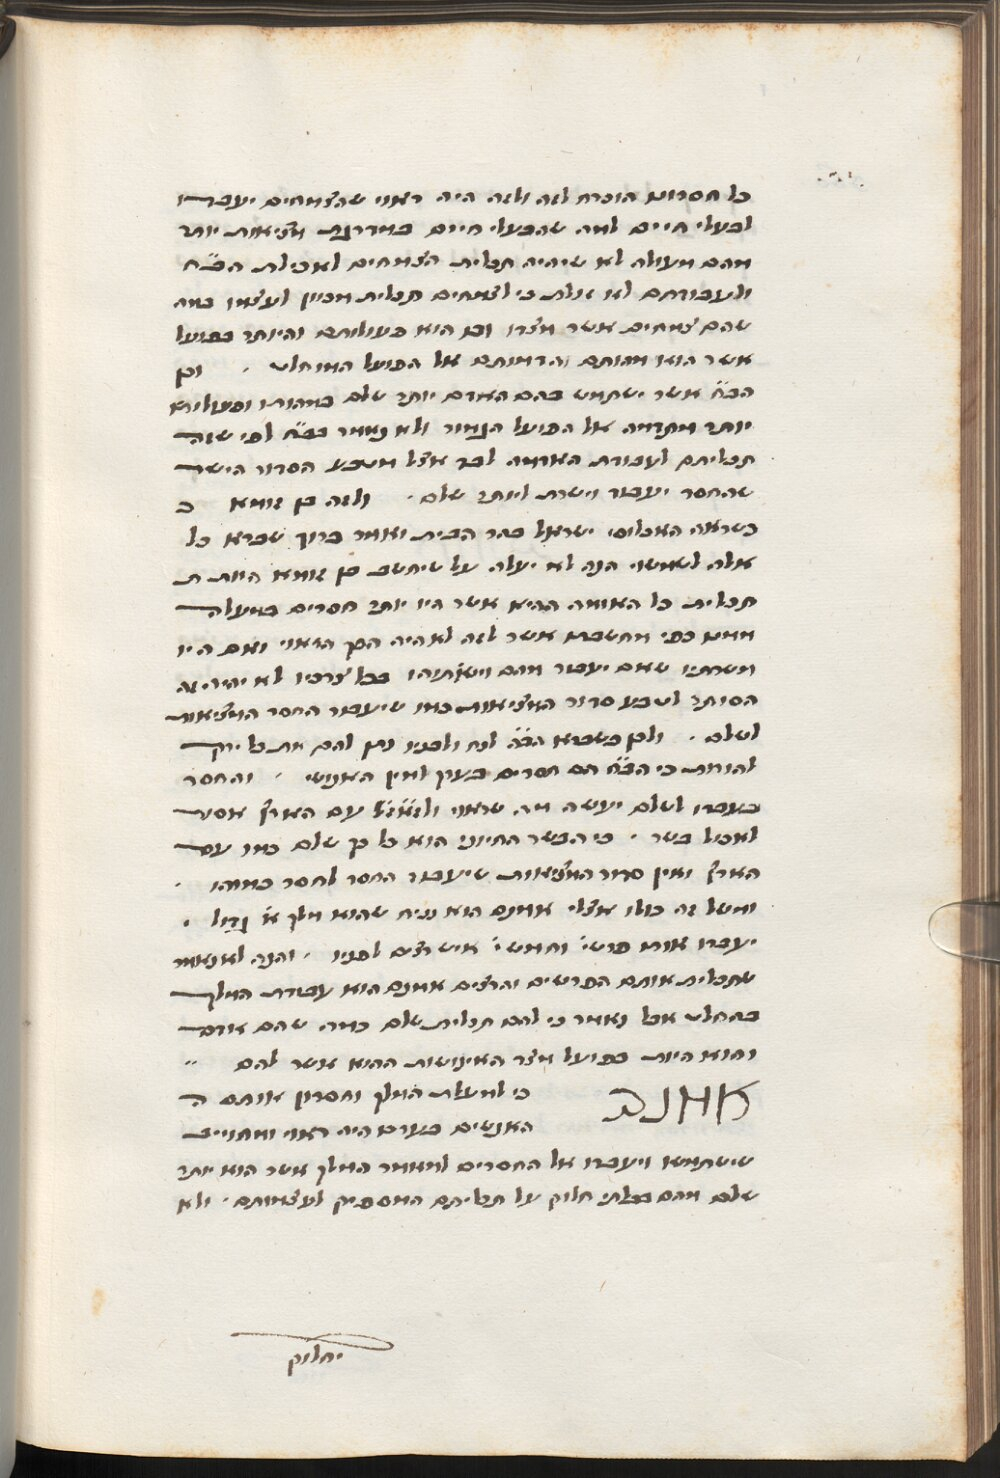 כל חסרונם הוכרח לזה ולזה היה ראוי שהצמחים יעבדו
לבעלי חיים למה שהבעלי חיים במדרגת מציאות יותר
מהם מעולה לא שיהיה תכלית הצמחים לאכילת הב״ח
ולעבודתם לא זולת כי לצמחים תכלית מכוין לעצמו במה
שהם צמחים אשר מצדו וכן הוא פעולותם והיותר בפועל
אשר הוא מהותם והדמותם אל הפועל המוחלט . וכן
הב״ח אשר ישתמש בהם האדם יותר שלם במהותו ופעולותיו
יותר מתדמה אל הפועל הגמור ולא נאמר בב״ח לפי שזה
תכליתם לעבודת האדמה לבד אצל מטבע הסדור הישר
שהחסר יעבוד וישרת ליותר שלם . ולזה בן זומא כ
כשראה האכלוסי ישראל בהר הבית ואמר ברוך שברא כל
אלה לשמשני הנה לא יעלה על שיחשב בן זומא היות ת
תכלית כל האומה ההיא אשר היו יותר חסרים במעלה
ממנו כפי מחשבתו אשר לזה לא היה הבן הראוי ואם היו
משרתיו שאם יעבוד מהם וישרתוהו בכל צרכיו לא יהיה זה
הסותר לטבע סדור המציאות כמו שיעבוד החסר המציאות
לשלם . ולכן כשברא הב״ה לנח ולבניו נתן להם את כל ירק
להורות כי הב״ח הם חסרים בערך למין האנושי . והחסר
בעבדו לשלם יעשה מה שראוי ולז״א ז״ל עם הארץ אסור
לאכול בשר . כי הבשר החיוני הוא כל כך שלם כמו עם
הארץ ואין סדור המציאות שיעבוד החסר לחסר כמוהו .
ומשל זה כולו אצלי אמנם הוא נניח שהוא מלך א׳ גדול .
יעבדו אותו פרשי׳ וחמשי׳ איש רצים לפניו . והנה לא נאמר
שתכלית אותם הפרשים והרצים אמנם הוא עבודת המלך
בהחלט אבל נאמר כי להם תכלית שלם במה שהם אדם
והוא היות בפועל מצד האינושות ההוא אשר להם ״
אמנם כי למעלת המלך וחסרון אותם ה
האנשים בערכו היה ראוי ומחוייב
שישתמשו ויעבדו אל החסרים למאמר המלך אשר הוא יותר
שלם מהם מבלתי חלוק על תכליתם המספיק לעצמותם . ולא
יחלוק